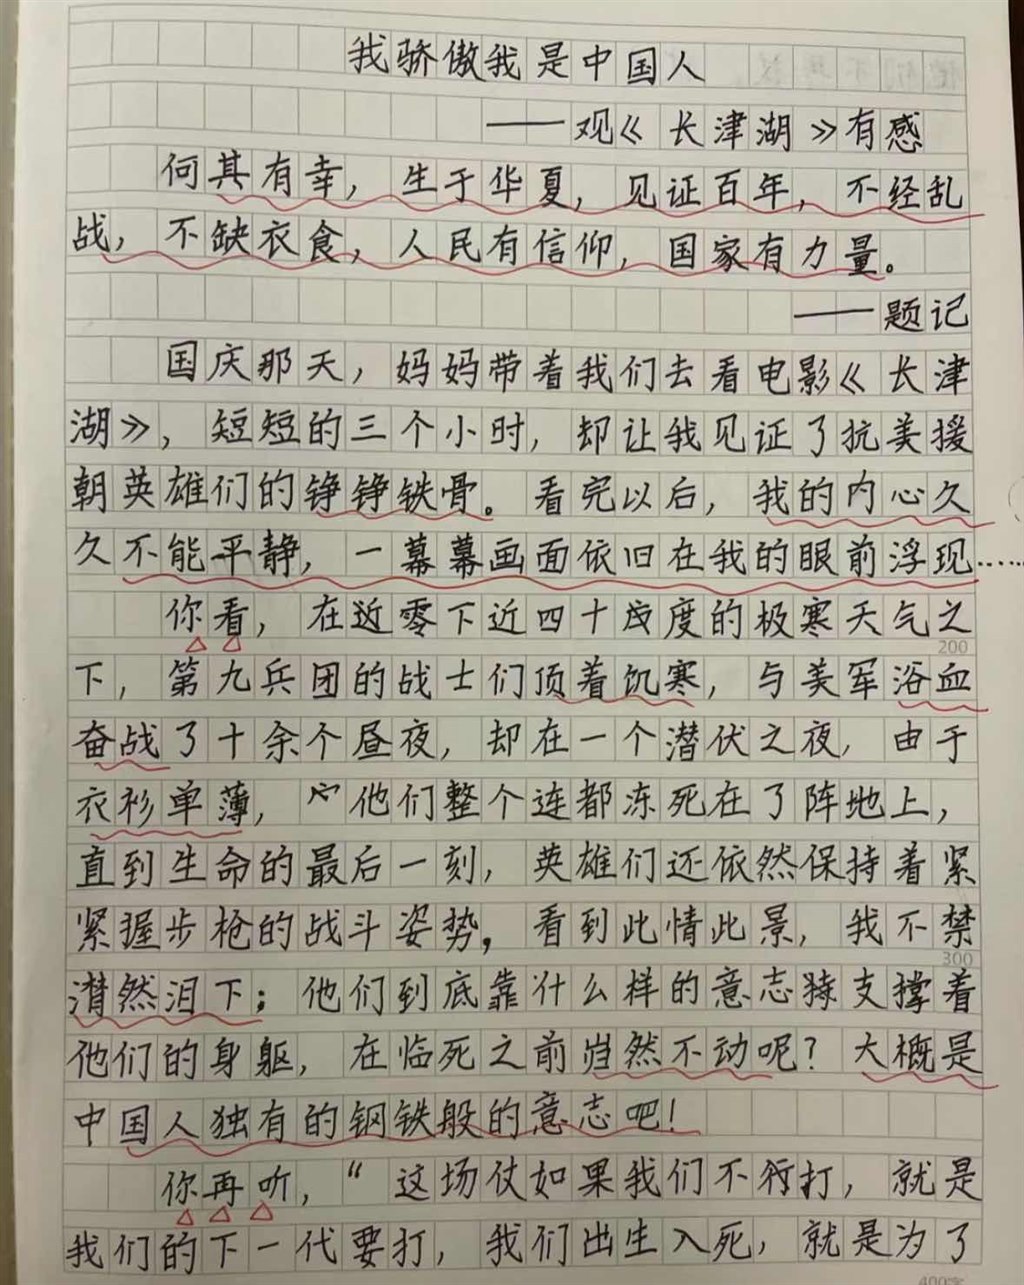 我骄傲我是中国人
——观《长津湖》有感
何其有幸，生于华夏，见证百年，不经乱
战，不缺衣食，人民有信仰，国家有力量。
——题记
国庆那天，妈妈带着我们去看电影《长津
湖》，短短的三个小时，却让我见证了抗美援
朝英雄们的铮铮铁骨。看完以后，我的内心久
久不能平静，一幕幕画面依旧在我的眼前浮现……
你看，在近零下近四十度的极寒天气之
200
下，第九兵团的战士们顶着饥寒，与美军浴血
奋战了十余个昼夜，却在一个潜伏之夜，由于
衣衫单薄，他们整个连都冻死在了阵地上，
直到生命的最后一刻，英雄们还依然保持着紧
紧握步枪的战斗姿势，看到此情此景，我不禁
300
潸然泪下；他们到底靠什么样的意志支撑着
他们的身躯，在临死之前岿然不动呢？大概是
中国人独有的钢铁般的意志吧！
你再听，“这场仗如果我们不打，就是
我们的下一代要打，我们出生入死，就是为了